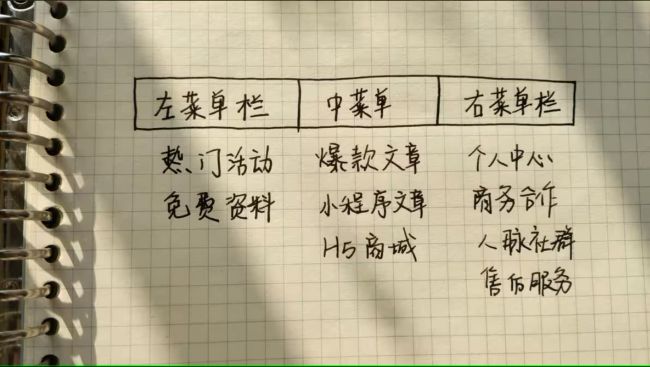 左菜单栏 中菜单 右菜单栏
热门活动 爆款文章 个人中心
免费资料 小程序文章 商务合作
H5商城 人脉社群
售后服务